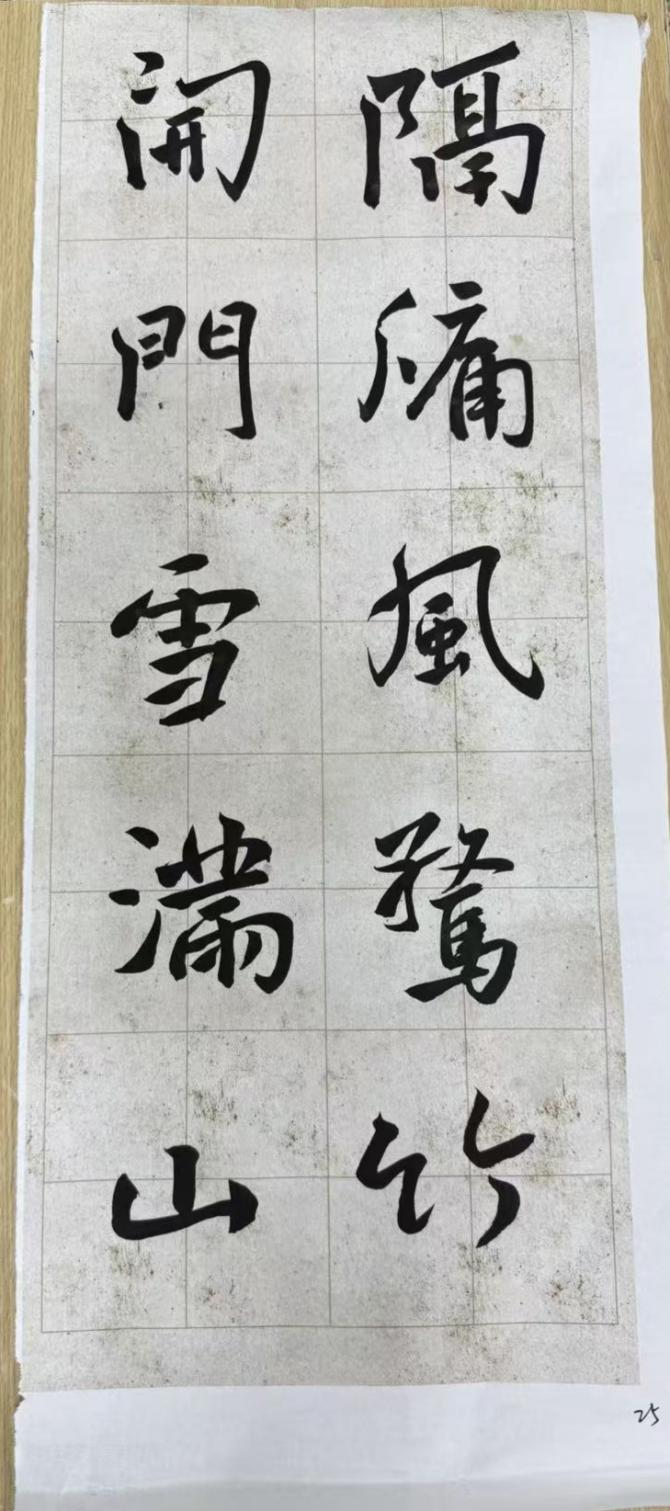 隔牖風驚竹
開門雪滿山
25